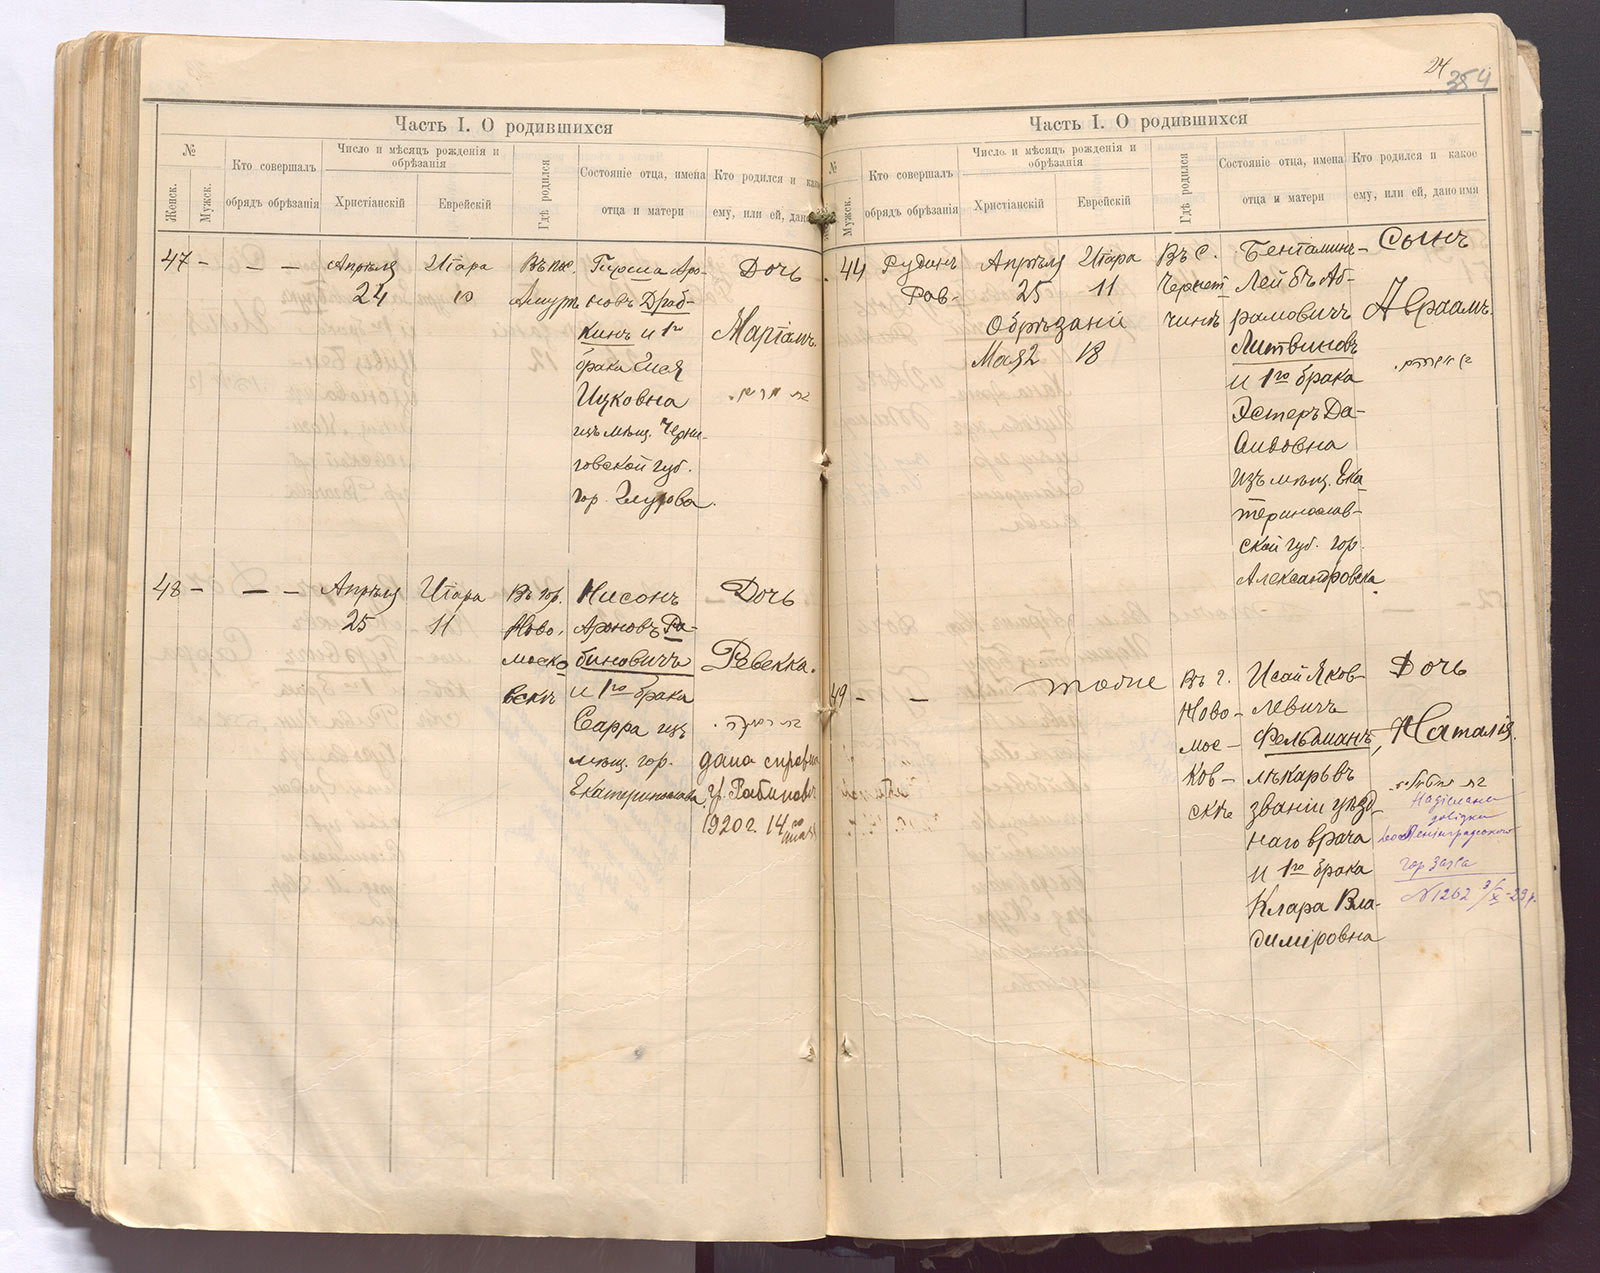 Часть I. О родившихся
№
Женск.
Мужск.
Кто совершалъ
обрядъ обрѣзанія
Число и мѣсяцъ рожденія и
обрѣзанія
Христіанскій
Еврейскій
Гдѣ родился
Состояніе отца, имена
отца и матери
Кто родился и
ему, или ей, дано
47 -
— —
Апрѣля
24
Иіара
10
Въ пос.
Амуръ
Гирша Аро-
новъ Драб-
кинъ и 1го
брака
Ицковна
изъ мѣщ. Черни-
говской губ.
гор. Глухова.
Дочь
Маріамъ.
48 -
— —
Апрѣля
25
Иіара
11
Въ гор.
Ново-
моско
вскѣ
Нисонъ
Ароновъ Ра-
биновичъ
и 1го брака
Сарра изъ
мѣщ. гор.
Екатеринослава
Дочь
Ревекка.
дана справка
гр. Рабинович
1920 г. 14го
мая
24
354
Часть I. О родившихся
№
Мужск.
Кто совершалъ
обрядъ обрѣзанія
Число и мѣсяцъ рожденія и
обрѣзанія
Христіанскій
Еврейскій
Гдѣ родился
Состояніе отца, имена
отца и матери
Кто родился и какое
ему, или ей, дано имя
44
Рудинъ
Рав-
Апрѣля
25
Иіара
11
Обрѣзаніи
Мая 2
18
Въ с.
Чернет
чинѣ
Беніаминъ-
Лейбъ Аб-
рамовичъ
Литвиновъ
и 1го брака
Эстеръ Да-
видовна
изъ мѣщ. Ека-
теринослав-
ской губ. гор.
Александровска
Сынъ
Авраамъ.
49 -
—
тоже
Въ г.
Ново-
мос-
ков-
скѣ
Исай Яков-
левичъ
Фельдманъ,
лѣкарь въ
званіи уѣзд-
наго врача
и 1го брака
Клара Вла-
диміровна
Дочь
Наталія.
довідки
Ленінградського
гор Загса
N 1262